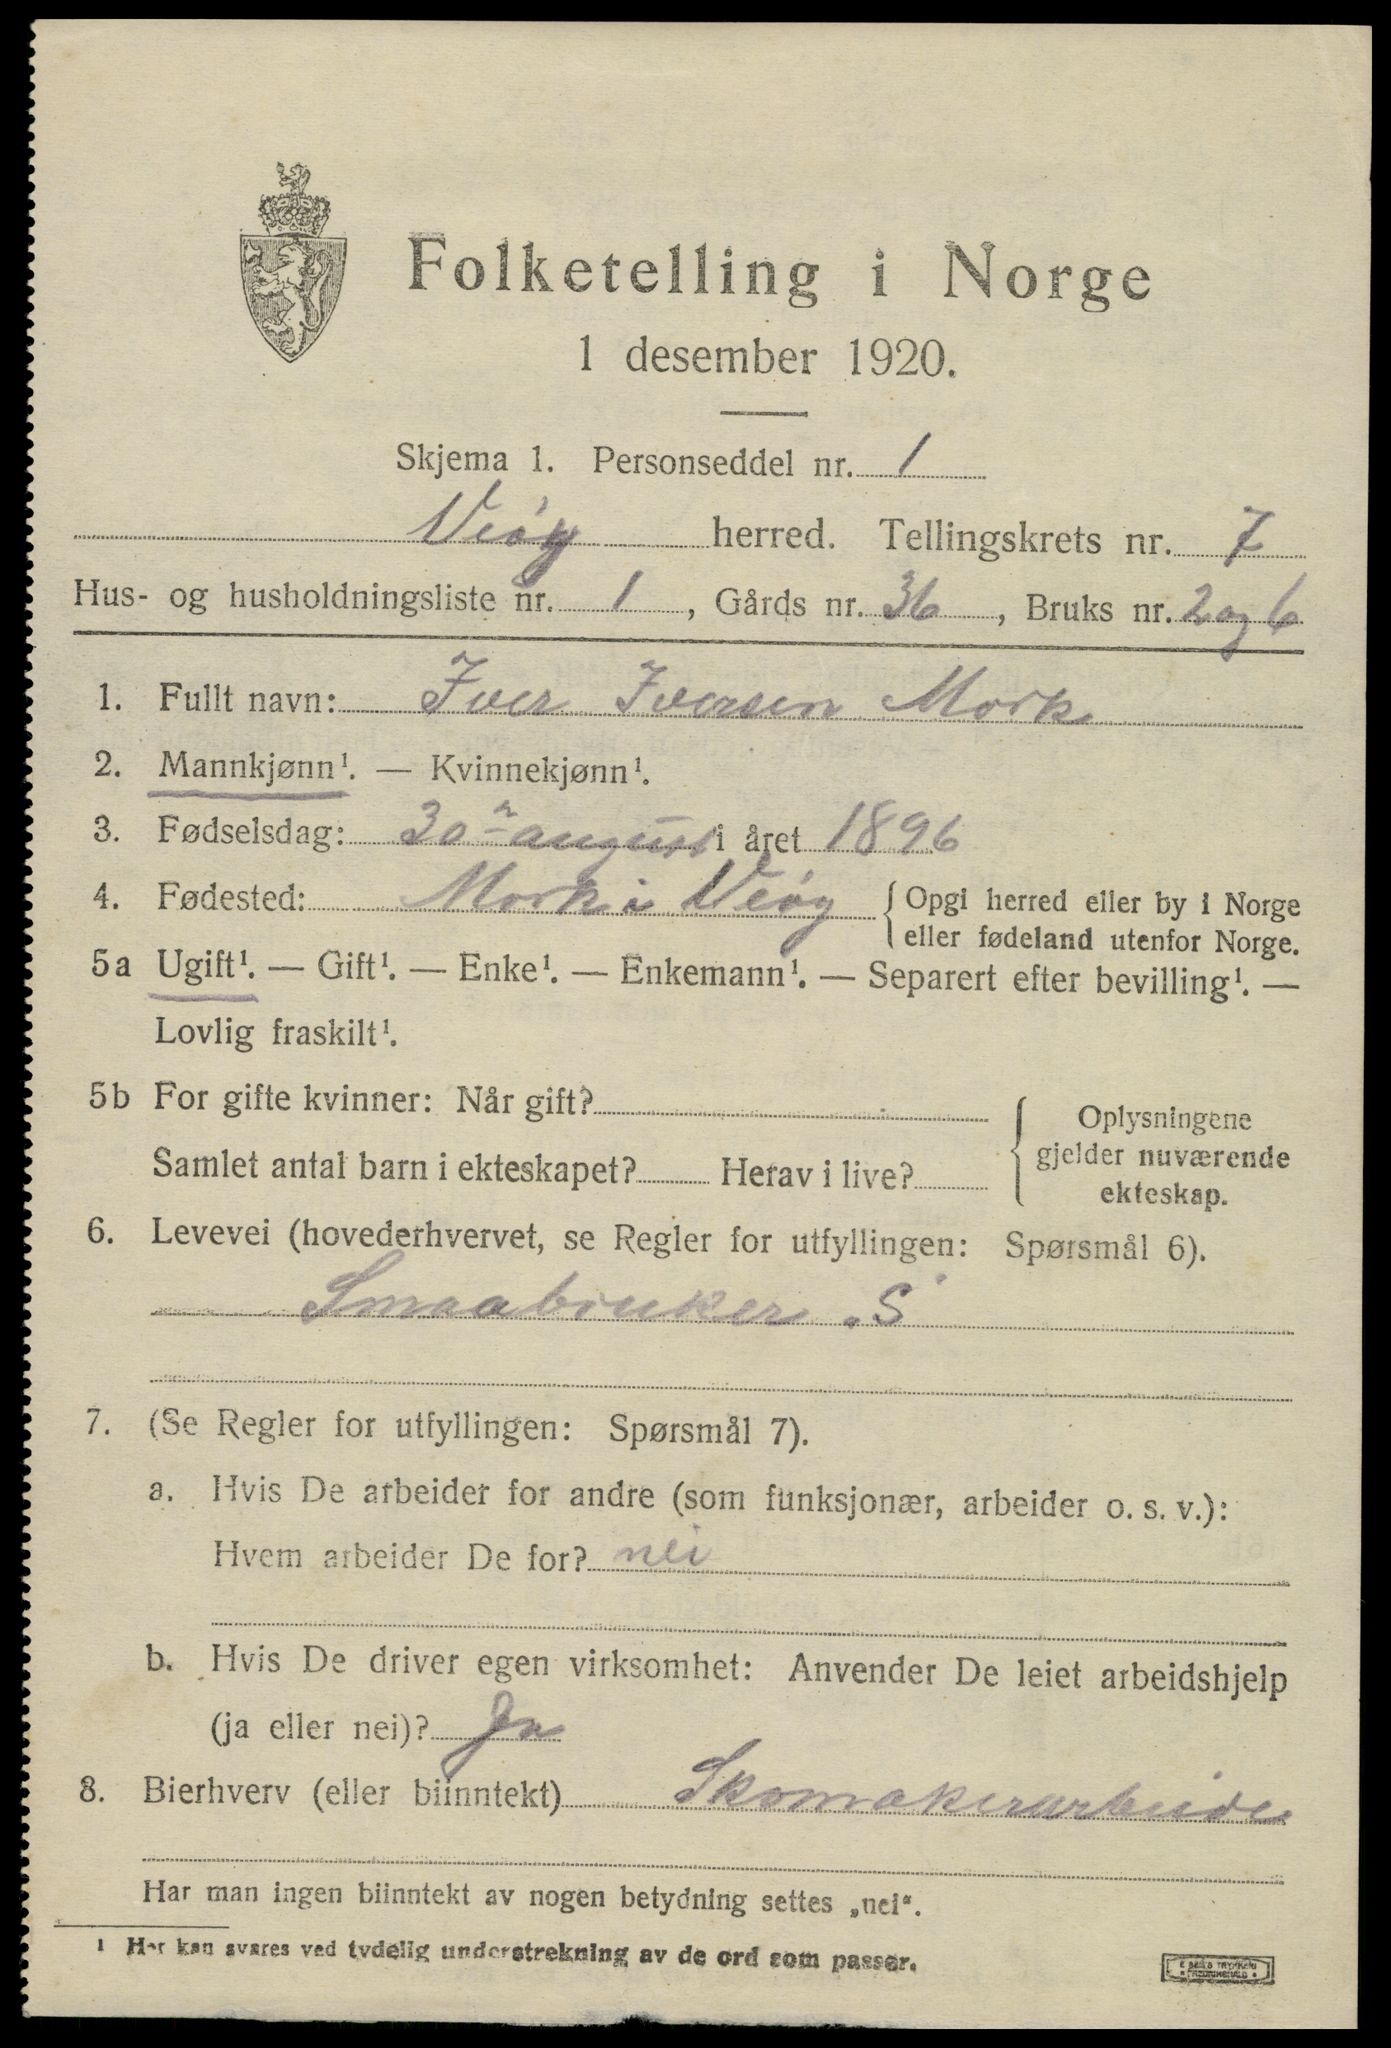 Folketelling i Norge
1 desember 1920.
Skjema 1. Personseddel nr. 1
Veøy herred. Tellingskrets nr. 7
Hus- og husholdningsliste nr. 1, Gårds nr. 36, Bruks nr. 2 og 6
1. Fullt navn: Iver Iversen Mork
2. Mannkjønn¹. — Kvinnekjønn¹.
3. Fødselsdag: 30 august i året 1896
4. Fødested: Mork i Veøy { Opgi herred eller by i Norge
eller fødeland utenfor Norge.
5a Ugift¹. — Gift¹. — Enke¹. — Enkemann¹. — Separert efter bevilling¹. —
Lovlig fraskilt¹.
5b For gifte kvinner: Når gift?
Samlet antal barn i ekteskapet? Herav i live?
{ Oplysningene
gjelder nuværende
ekteskap.
6. Levevei (hovederhvervet, se Regler for utfyllingen: Spørsmål 6).
Smaabruker. S
7. (Se Regler for utfyllingen: Spørsmål 7).
a. Hvis De arbeider for andre (som funksjonær, arbeider o. s. v.):
Hvem arbeider De for? nei
b. Hvis De driver egen virksomhet: Anvender De leiet arbeidshjelp
(ja eller nei)? Ja
8. Bierhverv (eller biinntekt) Skomakerarbeide
Har man ingen biinntekt av nogen betydning settes „nei“.
¹ Her kan svares ved tydelig understrekning av de ord som passer.